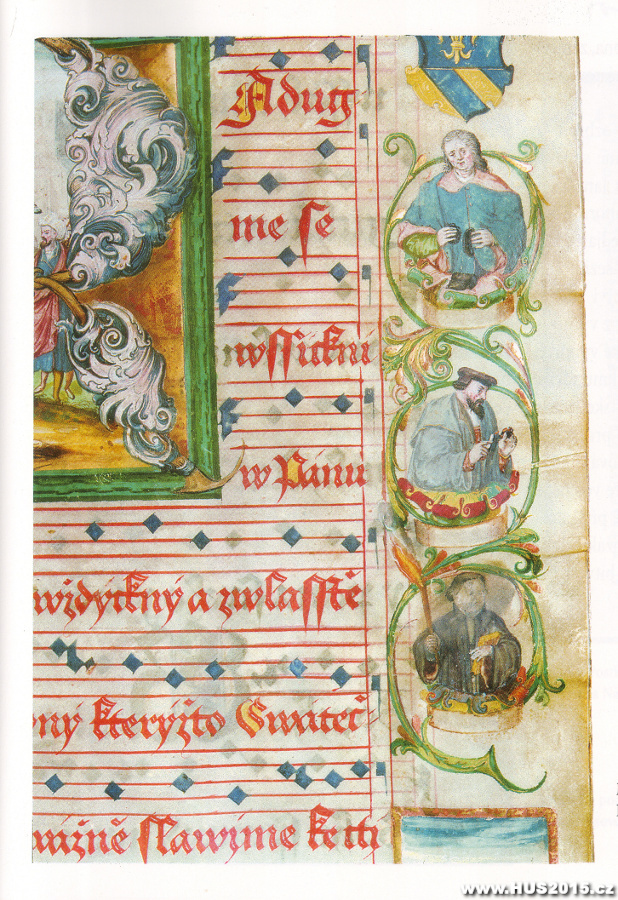 Radug
me se
wssickni
w Pánu
wždyckny a zwlasstě
ny kterýžto Swateč-
slawime ke cti
www.HUS2015.cz